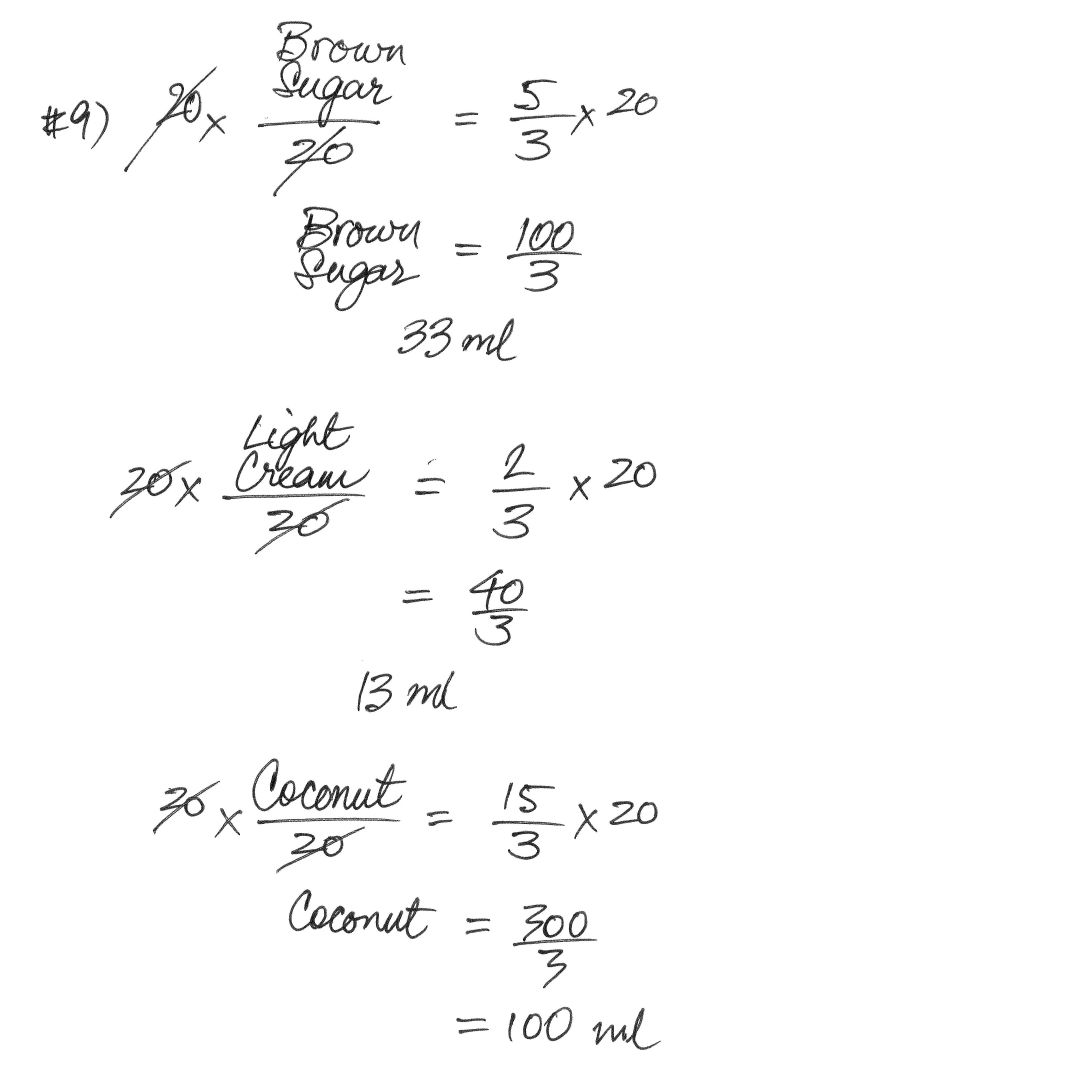 #9) 20 x Brown Sugar / 20 = 5/3 x 20
Brown Sugar = 100/3
33 ml
20 x Light Cream / 20 = 2/3 x 20
= 40/3
13 ml
20 x Coconut / 20 = 15/3 x 20
Coconut = 300/3
= 100 ml